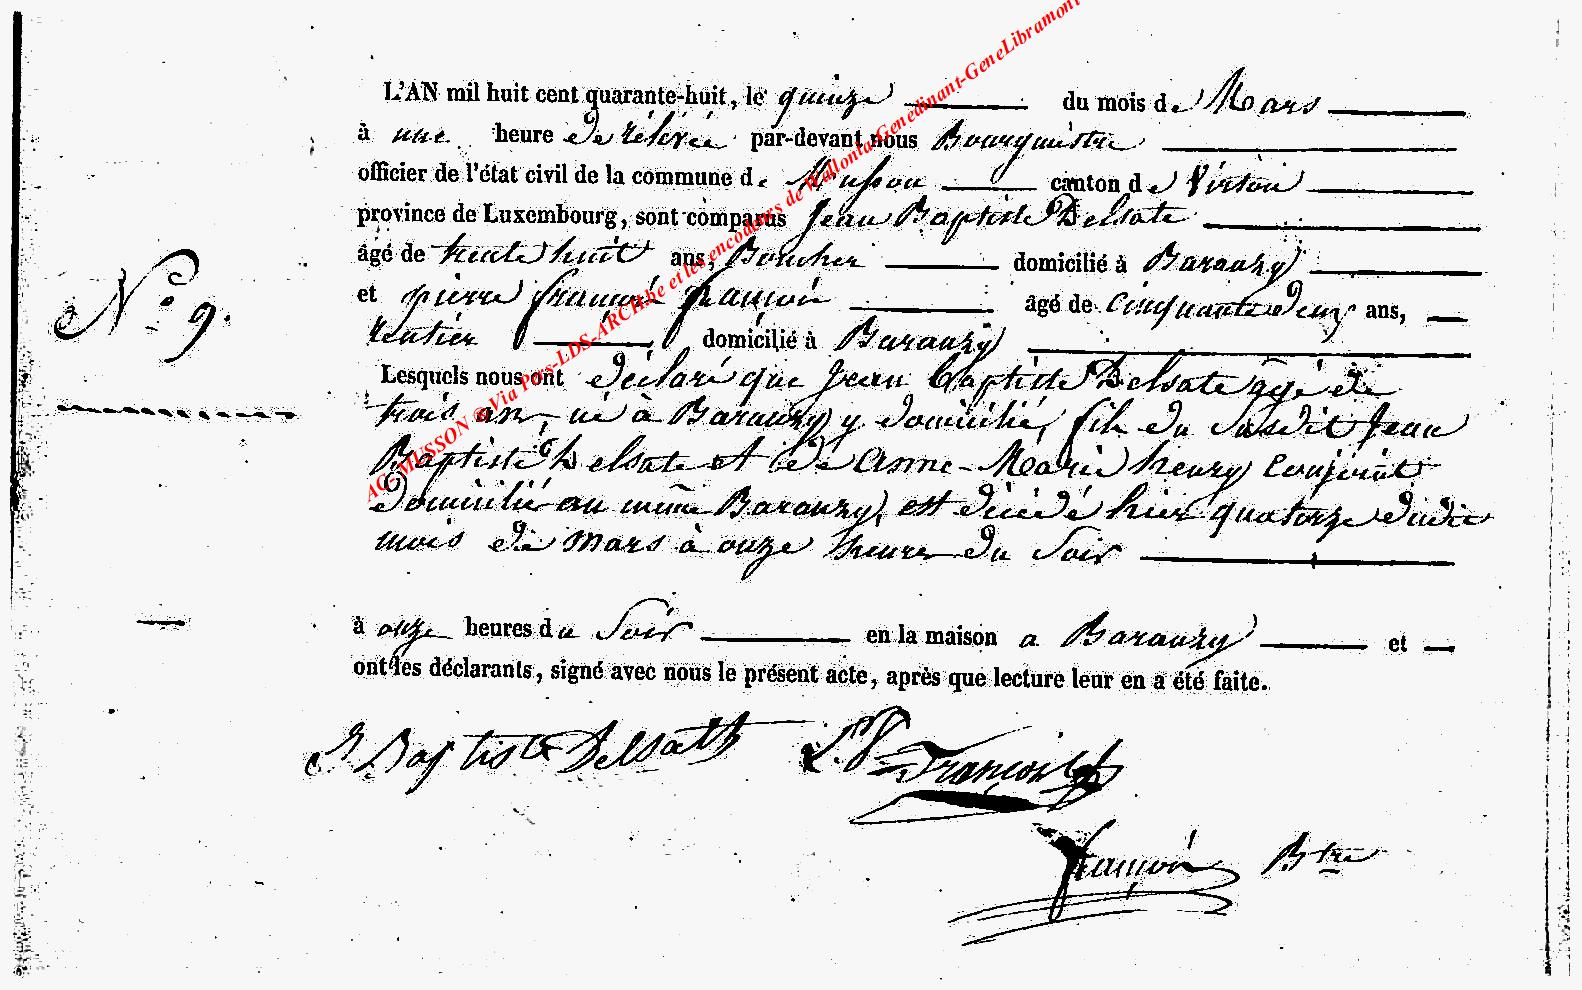 L'AN mil huit cent quarante-huit, le quinze du mois de Mars
à une heure de rélevée par-devant nous Bourgmestre
officier de l'état civil de la commune de Musson canton de Virton
province de Luxembourg, sont comparus Jean Baptiste Delsate
âgé de trente huit ans, Boucher domicilié à Baranzy
et pierre françois françois âgé de cinquante deux ans,
rentier domicilié à Baranzy
N° 9.
Lesquels nous ont déclaré que Jean Baptiste Delsate agé de
trois an, né à Baranzy y domicilié, fils du susdit Jean
Baptiste Delsate et de Anne-Marie henry conjoint
domicilié au même Baranzy, est décédé hier quatorze dudit
mois de mars à onze heures du Soir
à onze heures du Soir en la maison a Baranzy et
ont les déclarants, signé avec nous le présent acte, après que lecture leur en a été faite.
J Baptiste Delsath
François
françois Btre
AC-MUSSON @Via Pers-LDS-ARCH.be et les encodeurs de Wallonia-Genedinant-GeneLibramont